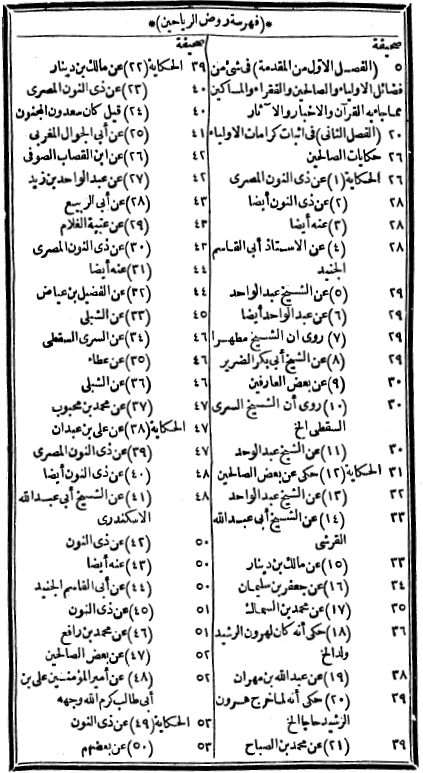 *(فهرسة روض الرياحين)*
صحيفة
٥ (الفصل الاول من المقدمة) فى شئ من
فضائل الاولياء والصالحين والفقراء والمساكين
مما جاء به القرآن والاخبار والآثار
٢٠ (الفصل الثانى) فى اثبات كرامات الاولياء
٢٦ حكايات الصالحين
٢٦ الحكاية (١) عن ذى النون المصرى
٢٨ (٢) عن ذى النون أيضا
٢٨ (٣) عنه أيضا
٢٨ (٤) عن الاستاذ أبى القاسم
الجنيد
٢٩ (٥) عن الشيخ عبد الواحد
٢٩ (٦) عن عبد الواحد أيضا
٢٩ (٧) روى ان الشيخ مطهرا
٢٩ (٨) عن الشيخ أبى بكر الضرير
٣٠ (٩) عن بعض العارفين
٣٠ (١٠) روى أن الشيخ السرى
السقطى الخ
٣٠ (١١) عن الشيخ عبد الوحد
٣١ الحكاية (١٢) حكى عن بعض الصالحين
٣٢ (١٣) عن الشيخ عبد الواحد
٣٣ (١٤) عن الشيخ أبى عبد الله
القرشى
٣٣ (١٥) عن مالك بن دينار
٣٤ (١٦) عن جعفر بن سليمان
٣٥ (١٧) عن محمد بن السماك
٣٦ (١٨) حكى أنه كان لهرون الرشيد
ولد الخ
٣٨ (١٩) عن عبد الله بن مهران
٣٩ (٢٠) حكى أنه لما خرج هرون
الرشيد حاجا الخ
٣٩ (٢١) عن محمد بن الصباح
صحيفة
٣٩ الحكاية (٢٢) عن مالك بن دينار
٤٠ (٢٣) عن ذى النون المصرى
٤٠ (٢٤) قيل كان سعدون المجنون
٤١ (٢٥) عن أبى الجوال المغربى
٤٢ (٢٦) عن ابن القصاب الصوفى
٤٢ (٢٧) عن عبد الواحد بن زيد
٤٣ (٢٨) عن أبى الربيع
٤٣ (٢٩) عن عتبة الغلام
٤٣ (٣٠) عن ذى النون المصرى
٤٤ (٣١) عنه أيضا
٤٤ (٣٢) عن الفضيل بن عياض
٤٥ (٣٣) عن الشبلى
٤٦ (٣٤) عن السرى السقطى
٤٦ (٣٥) عن عطاء
٤٦ (٣٦) عن الشبلى
٤٧ (٣٧) عن محمد بن محبوب
٤٧ الحكاية (٣٨) عن على بن عبدان
٤٧ (٣٩) عن ذى النون المصرى
٤٨ (٤٠) عن ذى النون أيضا
٤٨ (٤١) عن الشيخ أبى عبد الله
الاسكندرى
٥٠ (٤٢) عن ذى النون
٥٠ (٤٣) عنه أيضا
٥٠ (٤٤) عن أبى القاسم الجنيد
٥١ (٤٥) عن ذى النون
٥١ (٤٦) عن محمد بن رافع
٥٢ (٤٧) عن بعض الصالحين
٥٢ (٤٨) عن أمير المؤمنين على بن
أبى طالب كرم الله وجهه
٥٣ الحكاية (٤٩) عن ذى النون
٥٣ (٥٠) عن بعضهم